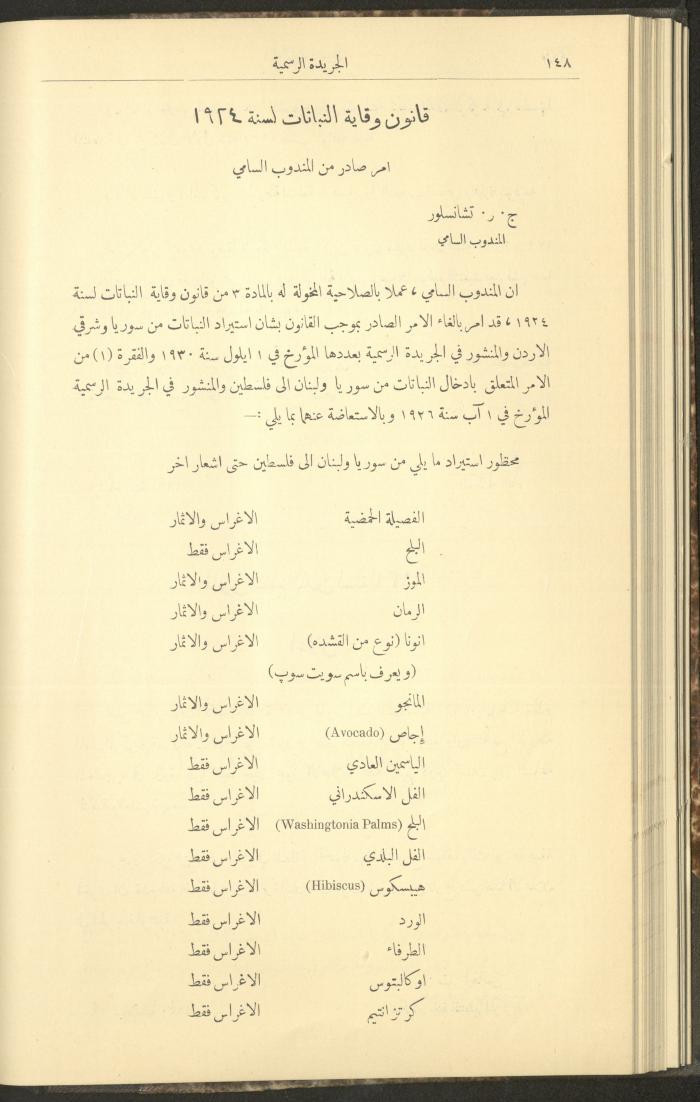 ١٤٨ الجريدة الرسمية
قانون وقاية النباتات لسنة ١٩٢٤
امر صادر من المندوب السامي
ج٠ ر٠ تشانسلور
المندوب السامي
ان المندوب السامي ، عملا بالصلاحية المخولة له بالمادة ٣ من قانون وقاية النباتات لسنة
١٩٢٤ ، قد امر بالغاء الامر الصادر بموجب القانون بشان استيراد النباتات من سوريا وشرقي
الاردن والمنشور في الجريدة الرسمية بعددها المؤرخ في ١ ايلول سنة ١٩٣٠ والفقرة (١) من
الامر المتعلق بادخال النباتات من سوريا ولبنان الى فلسطين والمنشور في الجريدة الرسمية
المؤرخ في ١ آب سنة ١٩٢٦ وبالاستعاضة عنهما بما يلي :—
محظور استيراد ما يلي من سوريا ولبنان الى فلسطين حتى اشعار اخر
الفصيلة الحمضية الاغراس والاثمار
البلح الاغراس فقط
الموز الاغراس والاثمار
الرمان الاغراس والاثمار
انونا (نوع من القشده) الاغراس والاثمار
(ويعرف باسم سويت سوپ)
المانجو الاغراس والاثمار
إجاص (Avocado) الاغراس والاثمار
الياسمين العادي الاغراس فقط
الفل الاسكندراني الاغراس فقط
البلح (Washingtonia Palms) الاغراس فقط
الفل البلدي الاغراس فقط
هيبسكوس (Hibiscus) الاغراس فقط
الورد الاغراس فقط
الطرفاء الاغراس فقط
اوكالبتوس الاغراس فقط
كرتزانتيم الاغراس فقط